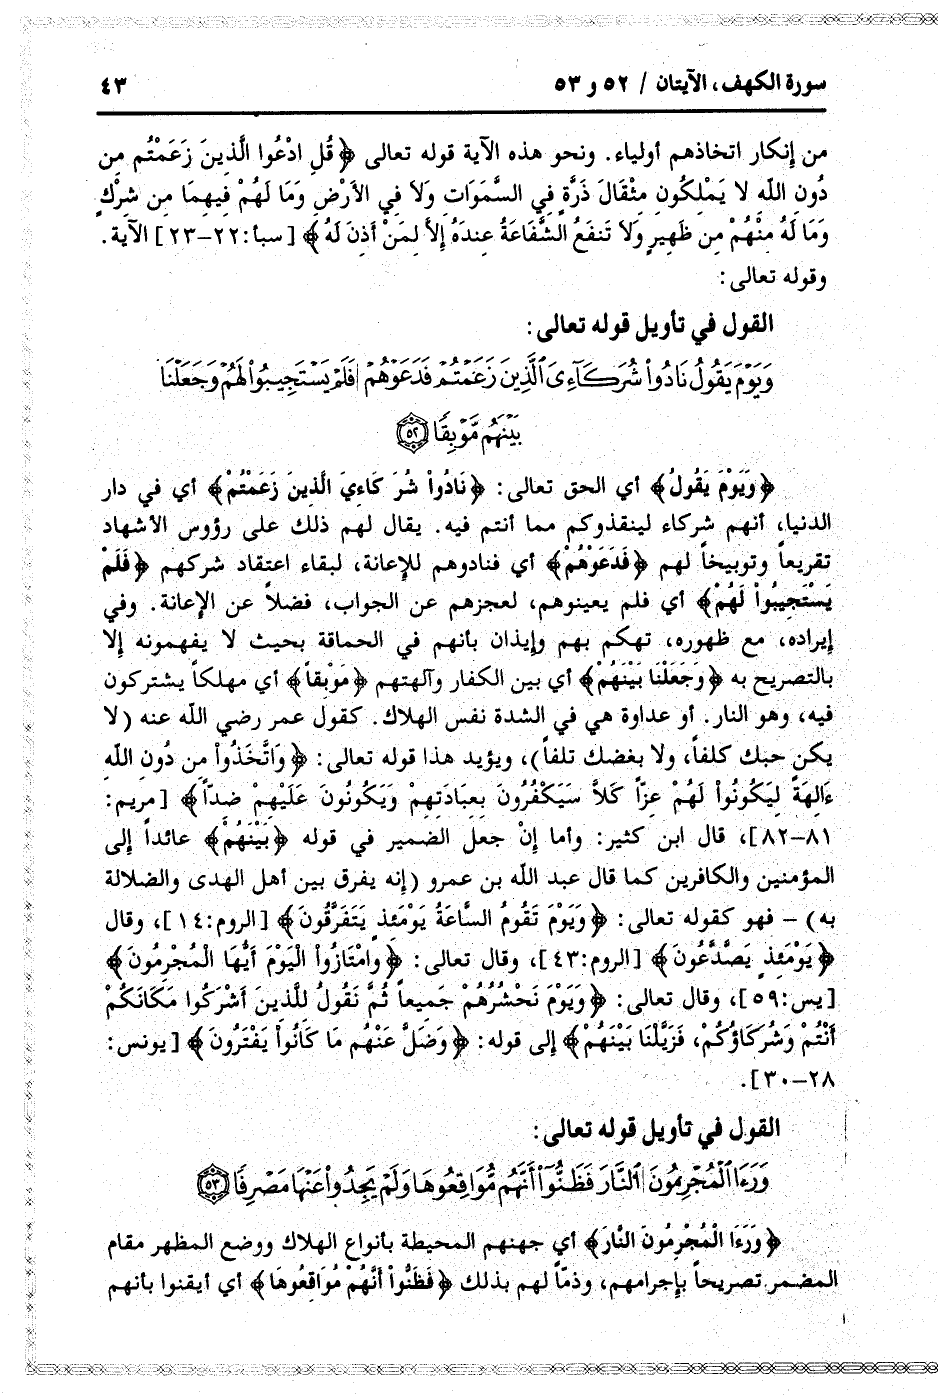 سورة الكهف، الآيتان / ٥٢ و ٥٣
٤٣
من إنكار اتخاذهم أولياء. ونحو هذه الآية قوله تعالى ﴿قُلِ ادْعُوا الَّذِينَ زَعَمْتُم مِن
دُونِ اللّه لا يَمْلِكُونَ مِثْقَالَ ذَرَّةٍ فِي السَّمَوَاتِ وَلاَ فِي الأَرْضِ وَمَا لَهُمْ فِيهِمَا مِن شِرْكٍ
وَمَا لَهُ مِنْهُمْ مِن ظَهِيرٍ وَلاَ تَنفَعُ الشَّفَاعَةُ عِندَهُ إِلاَّ لِمَنْ أَذِنَ لَهُ﴾ [سبأ:٢٢-٢٣] الآية.
وقوله تعالى:
القول في تأويل قوله تعالى:
وَيَوْمَ يَقُولُ نَادُواْ شُرَكَآءِيَ ٱلَّذِينَ زَعَمْتُمْ فَدَعَوْهُمْ فَلَمْ يَسْتَجِيبُواْ لَهُمْ وَجَعَلْنَا
بَيْنَهُم مَّوْبِقًا ٥٢
﴿وَيَوْمَ يَقُولُ﴾ أي الحق تعالى: ﴿نَادُواْ شُرَكَاءِيَ الَّذِينَ زَعَمْتُمْ﴾ أي في دار
الدنيا، أنهم شركاء لينقذوكم مما أنتم فيه. يقال لهم ذلك على رؤوس الأشهاد
تقريعاً وتوبيخاً لهم ﴿فَدَعَوْهُمْ﴾ أي فنادوهم للإعانة، لبقاء اعتقاد شركهم ﴿فَلَمْ
يَسْتَجِيبُواْ لَهُمْ﴾ أي فلم يعينوهم، لعجزهم عن الجواب، فضلاً عن الإعانة. وفي
إيراده، مع ظهوره، تهكم بهم وإيذان بأنهم في الحماقة بحيث لا يفهمونه إلا
بالتصريح به ﴿وَجَعَلْنَا بَيْنَهُمْ﴾ أي بين الكفار وآلهتهم ﴿مَوْبِقاً﴾ أي مهلكاً يشتركون
فيه، وهو النار. أو عداوة هي في الشدة نفس الهلاك. كقول عمر رضي اللّه عنه (لا
يكن حبك كلفاً، ولا بغضك تلفاً)، ويؤيد هذا قوله تعالى: ﴿وَاتَّخَذُواْ مِن دُونِ اللّهِ
ءَالِهَةً لِيَكُونُواْ لَهُمْ عِزّاً كَلاَّ سَيَكْفُرُونَ بِعِبَادَتِهِمْ وَيَكُونُونَ عَلَيْهِمْ ضِدّاً﴾ [مريم:
٨١-٨٢]، قال ابن كثير: وأما إنْ جعل الضمير في قوله ﴿بَيْنَهُمْ﴾ عائداً إلى
المؤمنين والكافرين كما قال عبد اللّه بن عمرو (إنه يفرق بين أهل الهدى والضلالة
به) - فهو كقوله تعالى: ﴿وَيَوْمَ تَقُومُ السَّاعَةُ يَوْمَئِذٍ يَتَفَرَّقُونَ﴾ [الروم:١٤]، وقال
﴿يَوْمَئِذٍ يَصَّدَّعُونَ﴾ [الروم:٤٣]، وقال تعالى: ﴿وَامْتَازُواْ الْيَوْمَ أَيُّهَا الْمُجْرِمُونَ﴾
[يس:٥٩]، وقال تعالى: ﴿وَيَوْمَ نَحْشُرُهُمْ جَمِيعاً ثُمَّ نَقُولُ لِلَّذِينَ أَشْرَكُوا مَكَانَكُمْ
أَنْتُمْ وَشُرَكَاؤُكُمْ، فَزَيَّلْنَا بَيْنَهُمْ﴾ إلى قوله: ﴿وَضَلَّ عَنْهُم مَا كَانُواْ يَفْتَرُونَ﴾ [يونس:
٢٨-٣٠].
القول في تأويل قوله تعالى:
وَرَءَا ٱلْمُجْرِمُونَ ٱلنَّارَ فَظَنُّوٓاْ أَنَّهُم مُّوَاقِعُوهَا وَلَمْ يَجِدُواْ عَنْهَا مَصْرِفًا ٥٣
﴿وَرَءَا الْمُجْرِمُونَ النَّارَ﴾ أي جهنهم المحيطة بأنواع الهلاك ووضع المظهر مقام
المضمر تصريحاً بإجرامهم، وذمّاً لهم بذلك ﴿فَظَنُّواْ أَنَّهُمْ مُوَاقِعُوهَا﴾ أي أيقنوا بأنهم